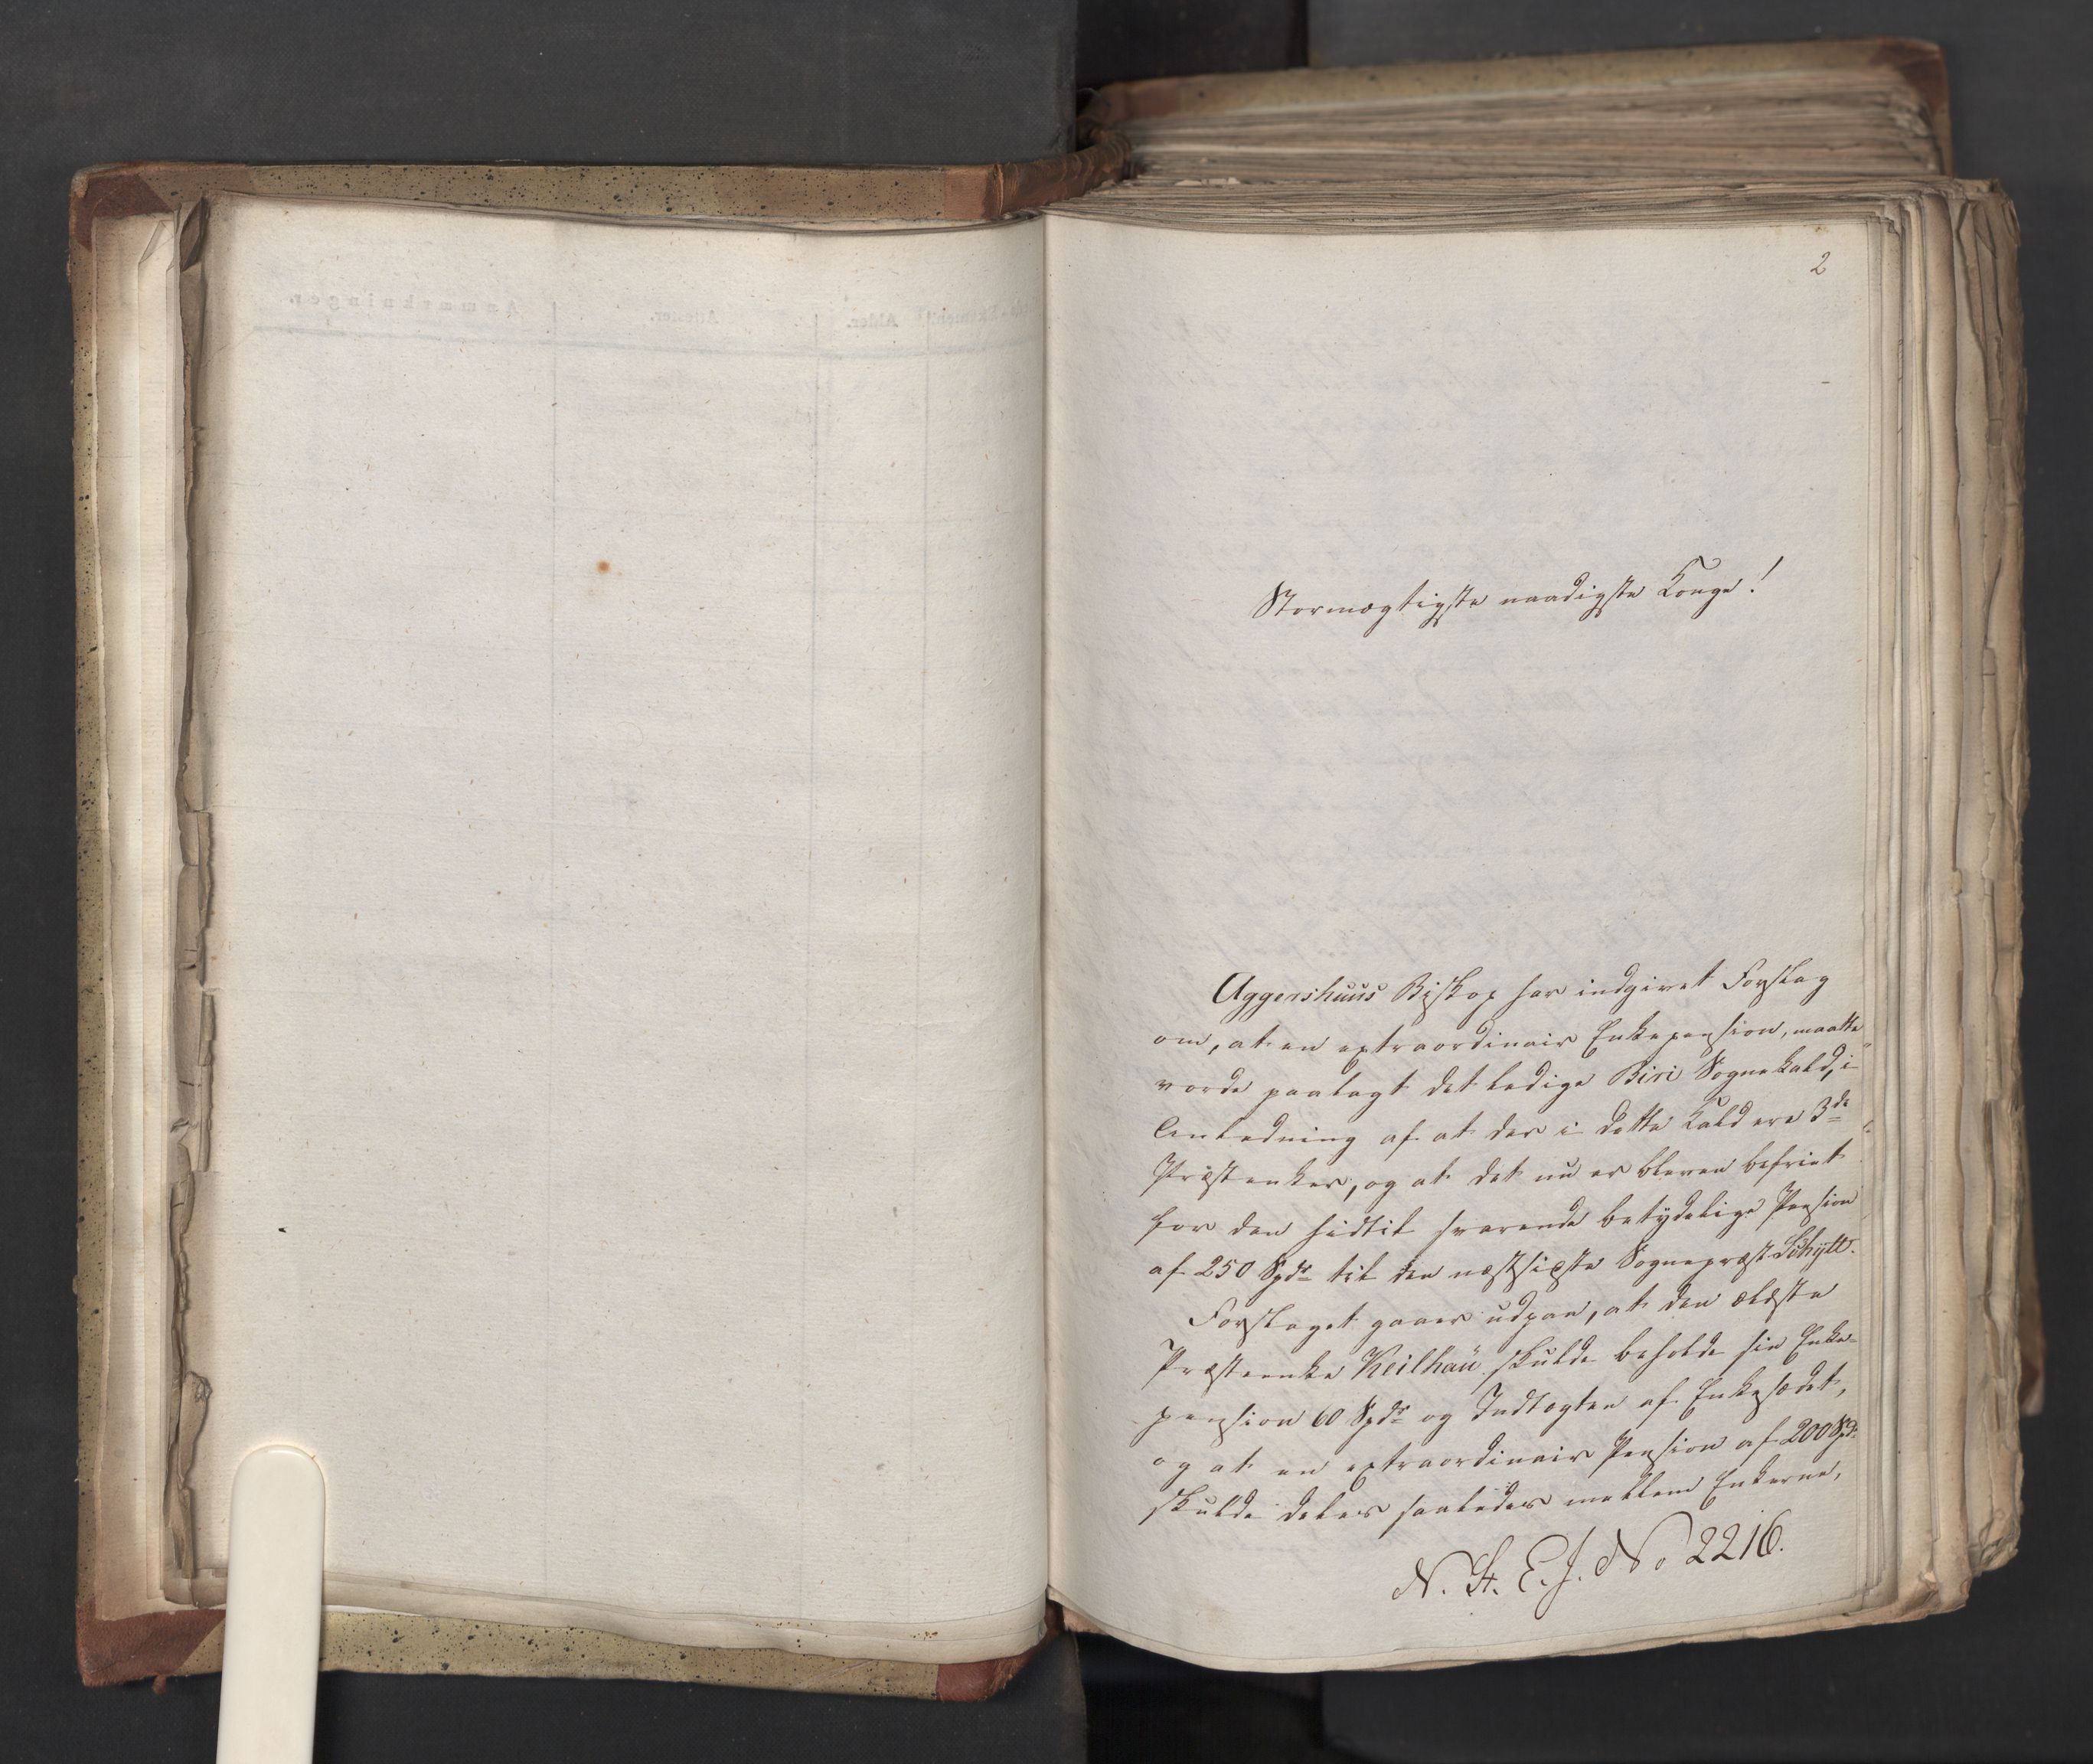 2
Stormægtigste naadigste Konge!
Aggershuus Biskop har indgivet Forslag
om, at en extraordinair Enkepension, maatte
vorde paalagt det ledige Biri Sognekald, i
Anledning af at der i dette Kald ere 3de
Præsteenker, og at det nu er bleven befriet
for den hidtil svarende betydelige Pension
af 250 Spdr til den næstsidste Sognepræst Schytt.
Forslaget gaaer udpaa, at den ældste
Præsteenke Keilhau skulde beholde sin Enke-
pension 60 Spdr og Indtægten af Enkesædet,
og at en extraordinair Pension af 200 Spd.
skulde deles saaledes mellem Enkerne,
N. St. E. J. No 2216.